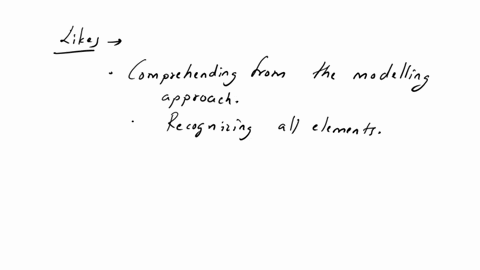 Likes →
· Comprehending from the modelling
approach.
· Recognizing all elements.